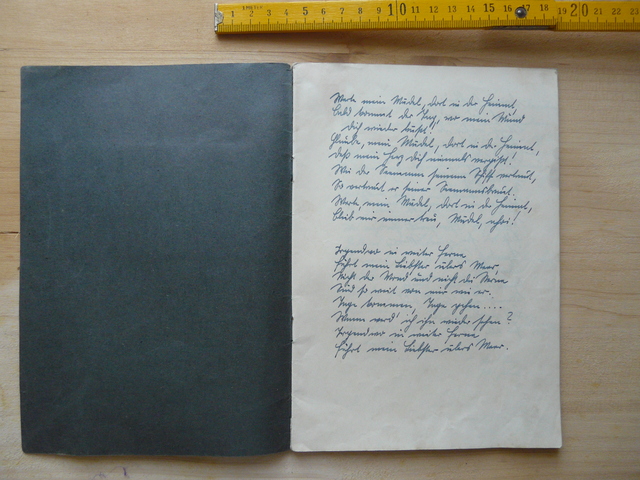 1 2 3 4 5 6 7 8 9 10 11 12 13 14 15 16 17 18 19 20 21 22 23
Warte mein Mädel, dort in der Heimat,
bald kommt der Tag, wo mein Mund
dich wieder küßt!
Glaube, mein Mädel, dort in der Heimat,
daß mein Herz dich niemals vergißt!
Wie der Seemann seinem Schiff vertraut,
So vertraut er seiner Seemannsbraut.
Warte, mein Mädel, dort in der Heimat,
bleib mir immer treu, Mädel, ahoi!
Irgendwo in weiter Ferne
fährt mein Liebster übers Meer,
Nicht der Mond und nicht die Sterne
sind so weit von mir wie er.
Tage kommen, Tage gehen....
Wann werd' ich ihn wieder sehen?
Irgendwo in weiter Ferne
fährt mein Liebster übers Meer.